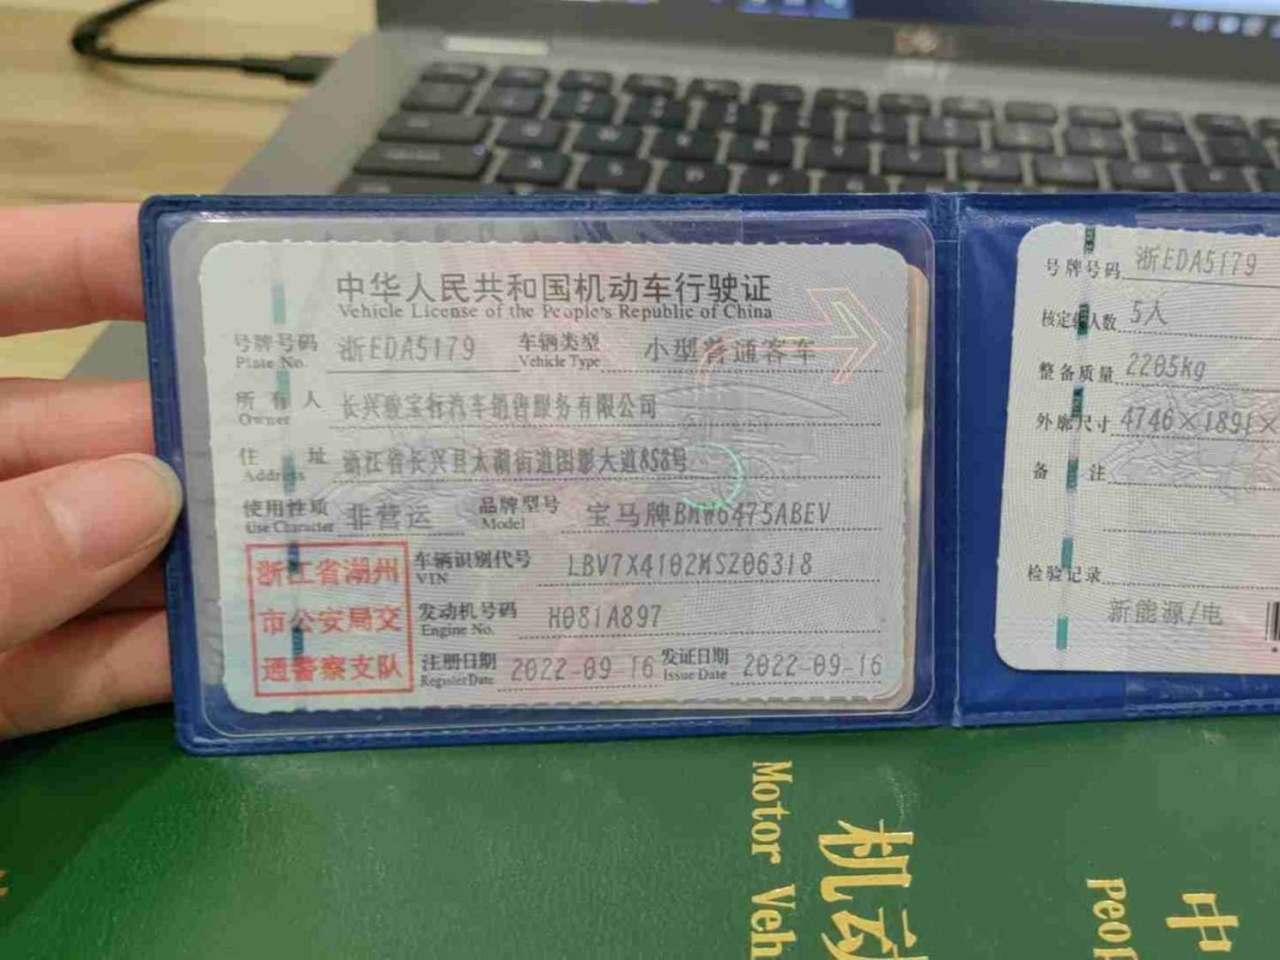 中华人民共和国机动车行驶证
Vehicle License of the People's Republic of China
号牌号码 浙EDA5179 车辆类型 小型普通客车
Plate No. Vehicle Type
所有人 长兴骏宝行汽车销售服务有限公司
Owner
住址 浙江省长兴县太湖街道图影大道858号
Address
使用性质 非营运 品牌型号 宝马牌BMW6475ABEV
Use Character Model
浙江省湖州
市公安局交
通警察支队
车辆识别代号 LBV7X4102MSZ06318
VIN
发动机号码 H081A897
Engine No.
注册日期 2022-09-16 发证日期 2022-09-16
Register Date Issue Date
号牌号码 浙EDA5179
核定载人数 5人
整备质量 2205kg
外廓尺寸 4746×1891×
备注
检验记录
新能源/电
机动
Motor Veh
中
peop